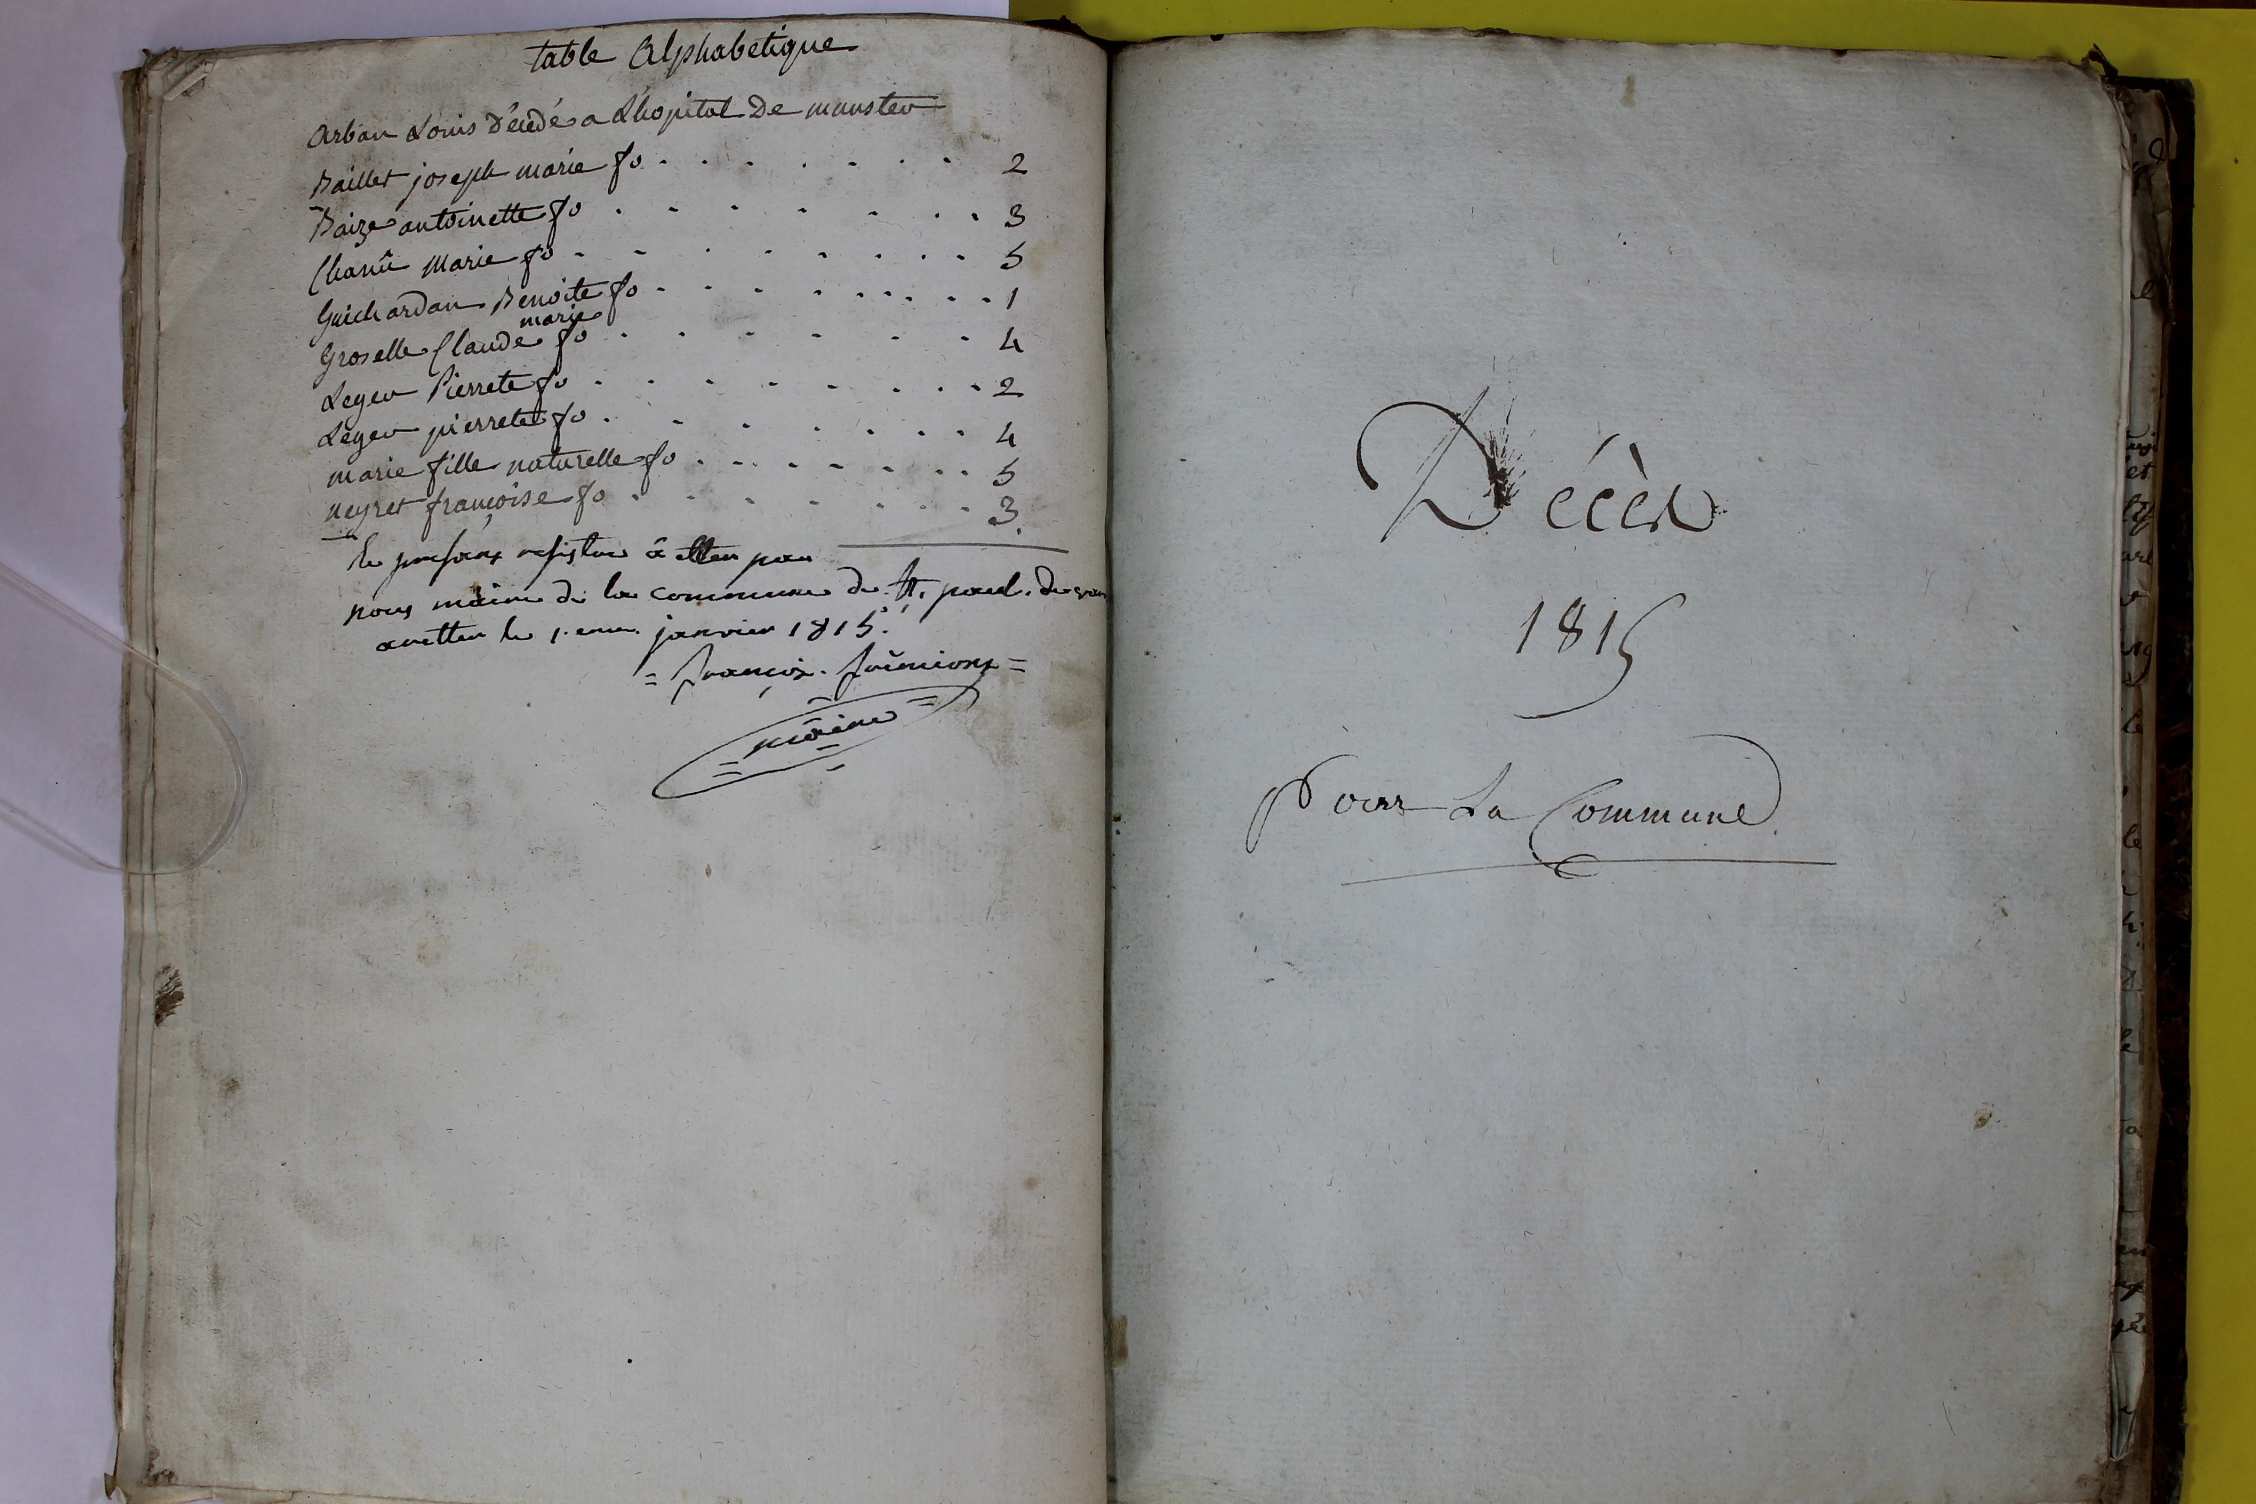 table Alphabetique
Arban Louis Décédé a L'hopital De munster
Baillet joseph marie fo . . . . . . . 2
Baize antoinette fo . . . . . . . 3
Chanû Marie fo . . . . . . . . 5
Guichardan Benoite fo . . . . . . . . . 1
marie
Groselle Claude fo . . . . . . 4
Leger Pierrete fo . . . . . . . . 2
Leger pierrete fo . . . . . . . 4
marie fille naturelle fo . . . . . . . . 5
neyret françoise fo . . . . . . . 3.
le présent
nous maire de la commune de St. paul. de
aretter le 1. enier. janvier 1815.
= françois. =
= maire =
Décès
1815
Pour La Commune.